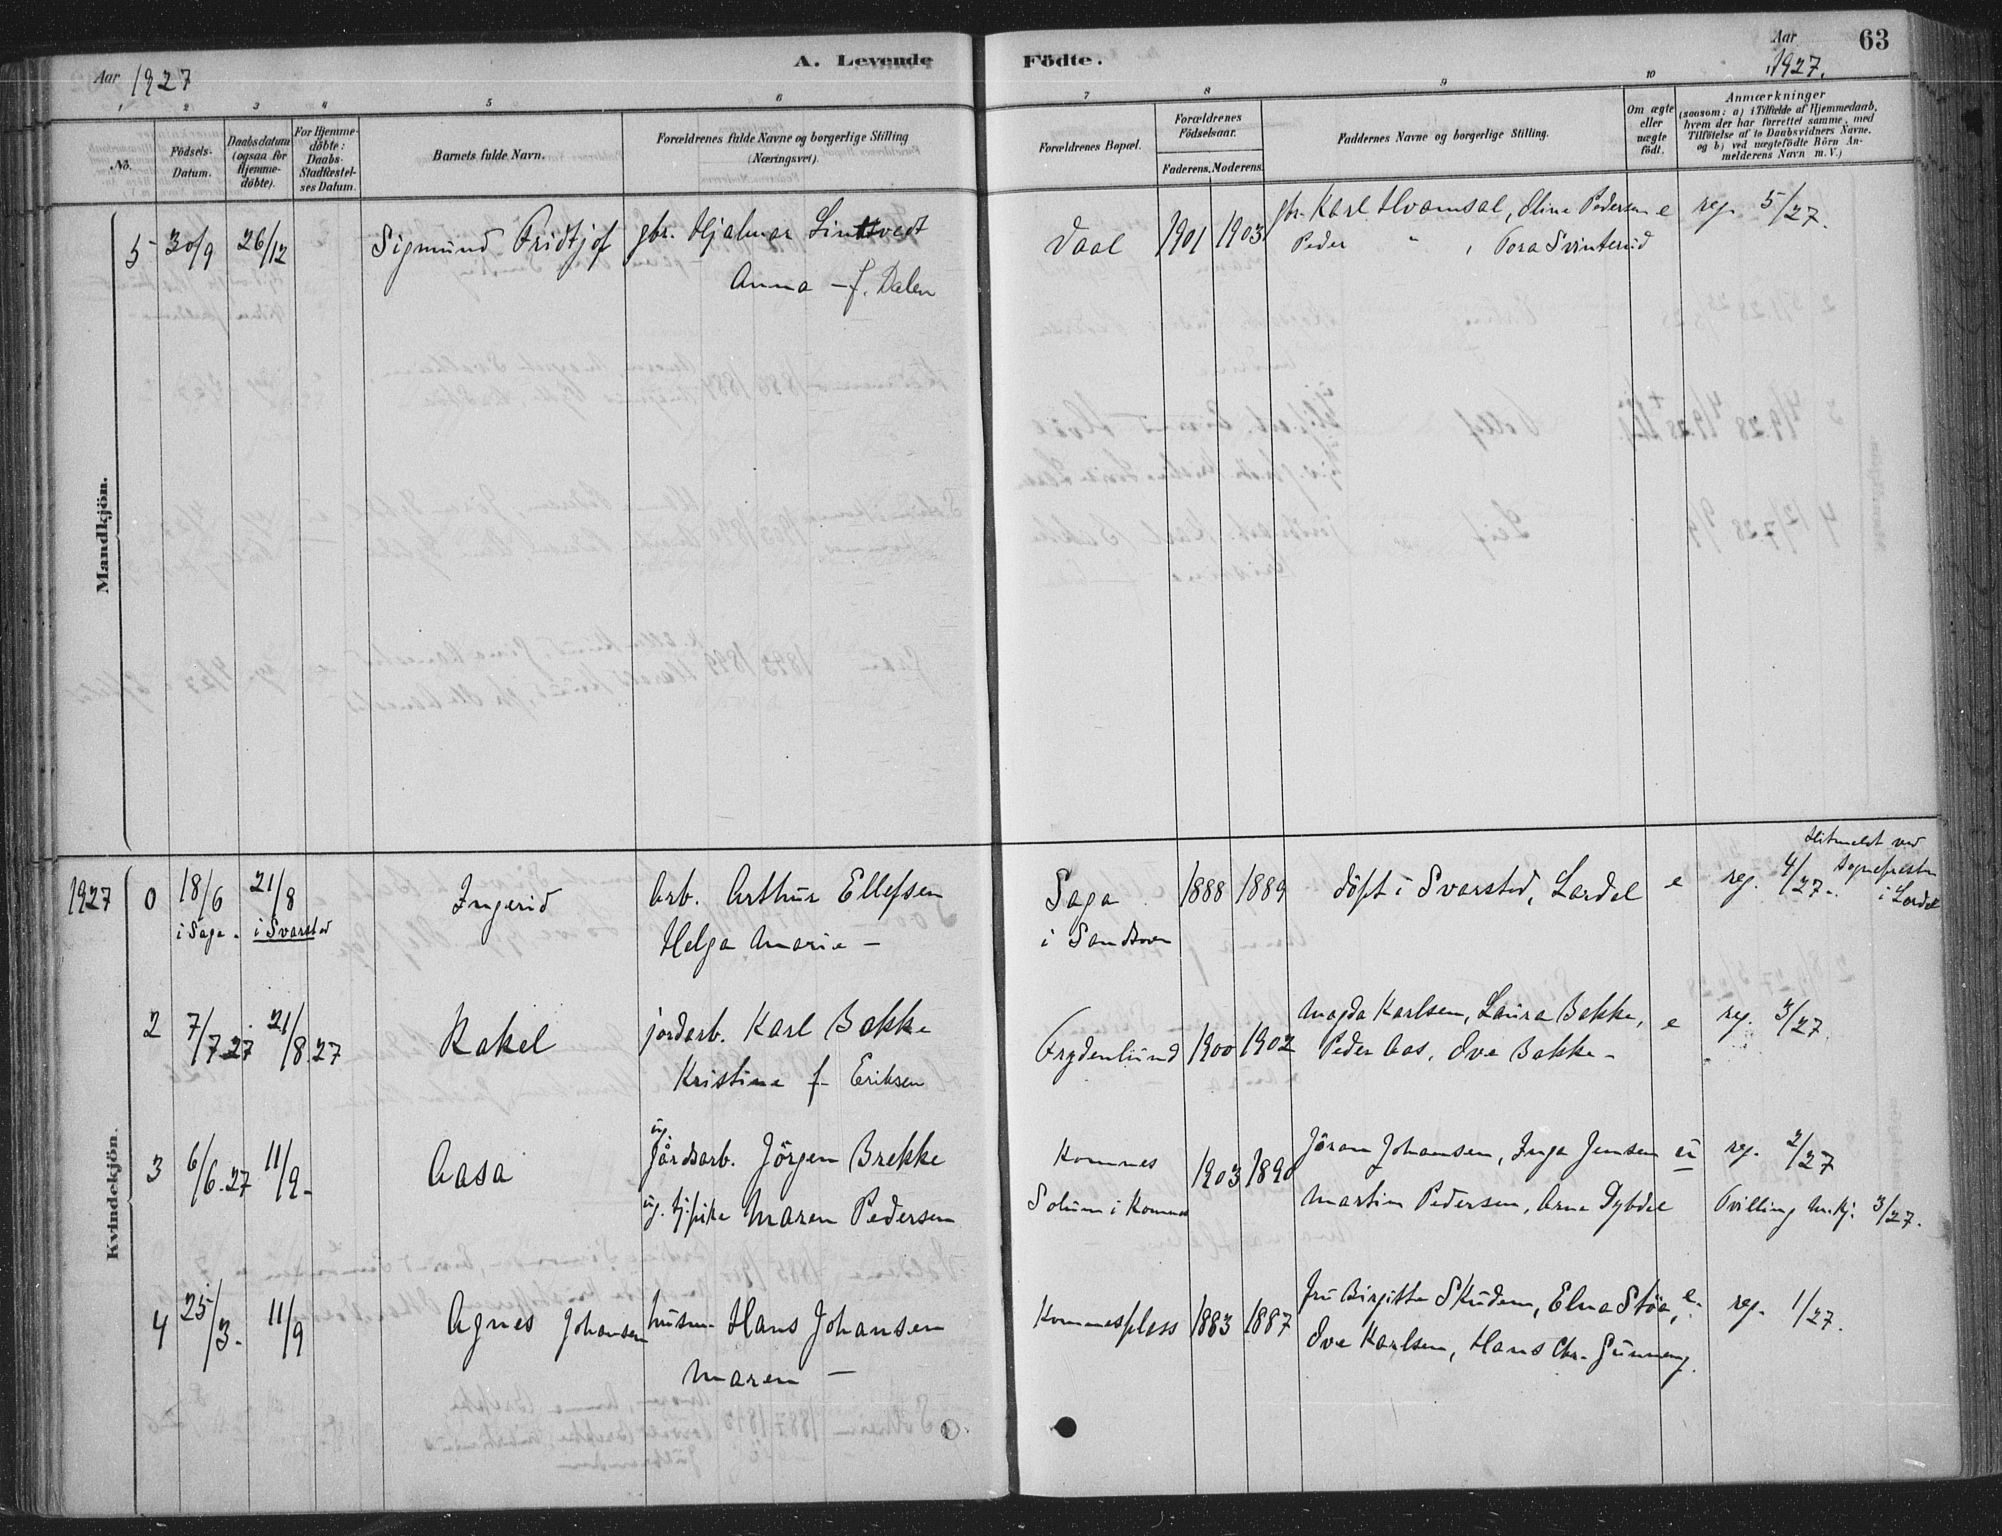 Aar 1927
A. Levende
Födte.
Aar 1927.
63
1 2 3 4 5 6 7 8 9 10
No.
Födsels-Datum.
Daabsdatum (ogsaa for Hjemme-döbte).
For Hjemme-döbte: Daabs-Stadfæstel-ses Datum.
Barnets fulde Navn.
Forældrenes fulde Navne og borgerlige Stilling (Næringsvei).
Forældrenes Bopæl.
Forældrenes Födselsaar.
Faderens. Moderens.
Faddernes Navne og borgerlige Stilling.
Om ægte eller uægte födt.
Anmærkninger
(saasom: a) i Tilfælde af Hjemmedaab, hvem der har forrettet samme, med Tilföielse af to Daabsvidners Navne, og b) ved uægtefödte Börn An-melderens Navn m. V.)
Mandkjön.
5 30/9 26/12 Sigmund Fridtjof gbr. Hjalmar Lintvedt Daal 1901 1903 gbr. Karl Hvamsal, Oline Pedersen e reg. 5/27.
Anna - f. Dalen Peder " , Tora Svinterud
Kvindekjön.
1927 0 18/6 21/8 Ingerid Arb. Arthur Ellefsen Saga 1888 1889 döpt i Svarstad, Lardal e reg. 4/27.
i Saga. i Svarstad Helga Marie - i Sandsvær
sognepresten i Lardal
2 7/7 27 21/8 27 Rakel jordarb. Karl Bakke Frydenlund 1900 1902 Magda Karlsen, Laura Bakke, e reg. 3/27.
Kristine f. Eriksen Peder Aas, Ove Bakke -
3 6/6.27 11/9- Aasa ug. Jordarb. Jörgen Brekke Komnes 1903 1890 Jöran Johansen, Inga Jensen u reg. 2/27
ug. tj.pike Maren Pedersen Solum i Komnes Martin Pedersen, Arne Dybdal Tvilling m.kj. 3/27.
4 25/3. 11/9 Agnes Johansen husm. Hans Johansen Komnesplass 1883 1887 fru Birgitte Skudem, Elna Stöa, e. reg. 1/27.
Maren - Ove Karlsen, Hans Chr.